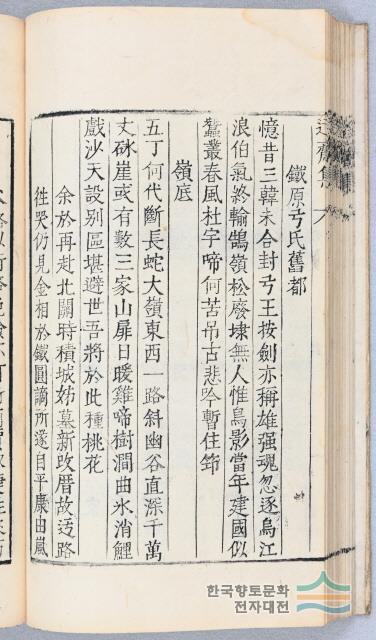 鐵原弓氏舊都
憶昔三韓未合封弓王按劍亦稱雄强魂忽逐烏江
浪伯氣終輸鵠嶺松廢埭無人惟鳥影當年建國似
蠶叢春風杜宇啼何苦吊古悲吟暫住笻
嶺底
五丁何代斷長蛇大嶺東西一路斜幽谷直深千萬
丈砯崖或有數三家山扉日暖雞啼樹澗曲氷消鯉
戲沙天設別區堪避世吾將於此種桃花
余於再赴北關時積城姊墓新改厝故迃路
徃哭仍見金相於鐵圓謫所遂自平康由嵐
한국향토문화
전자대전